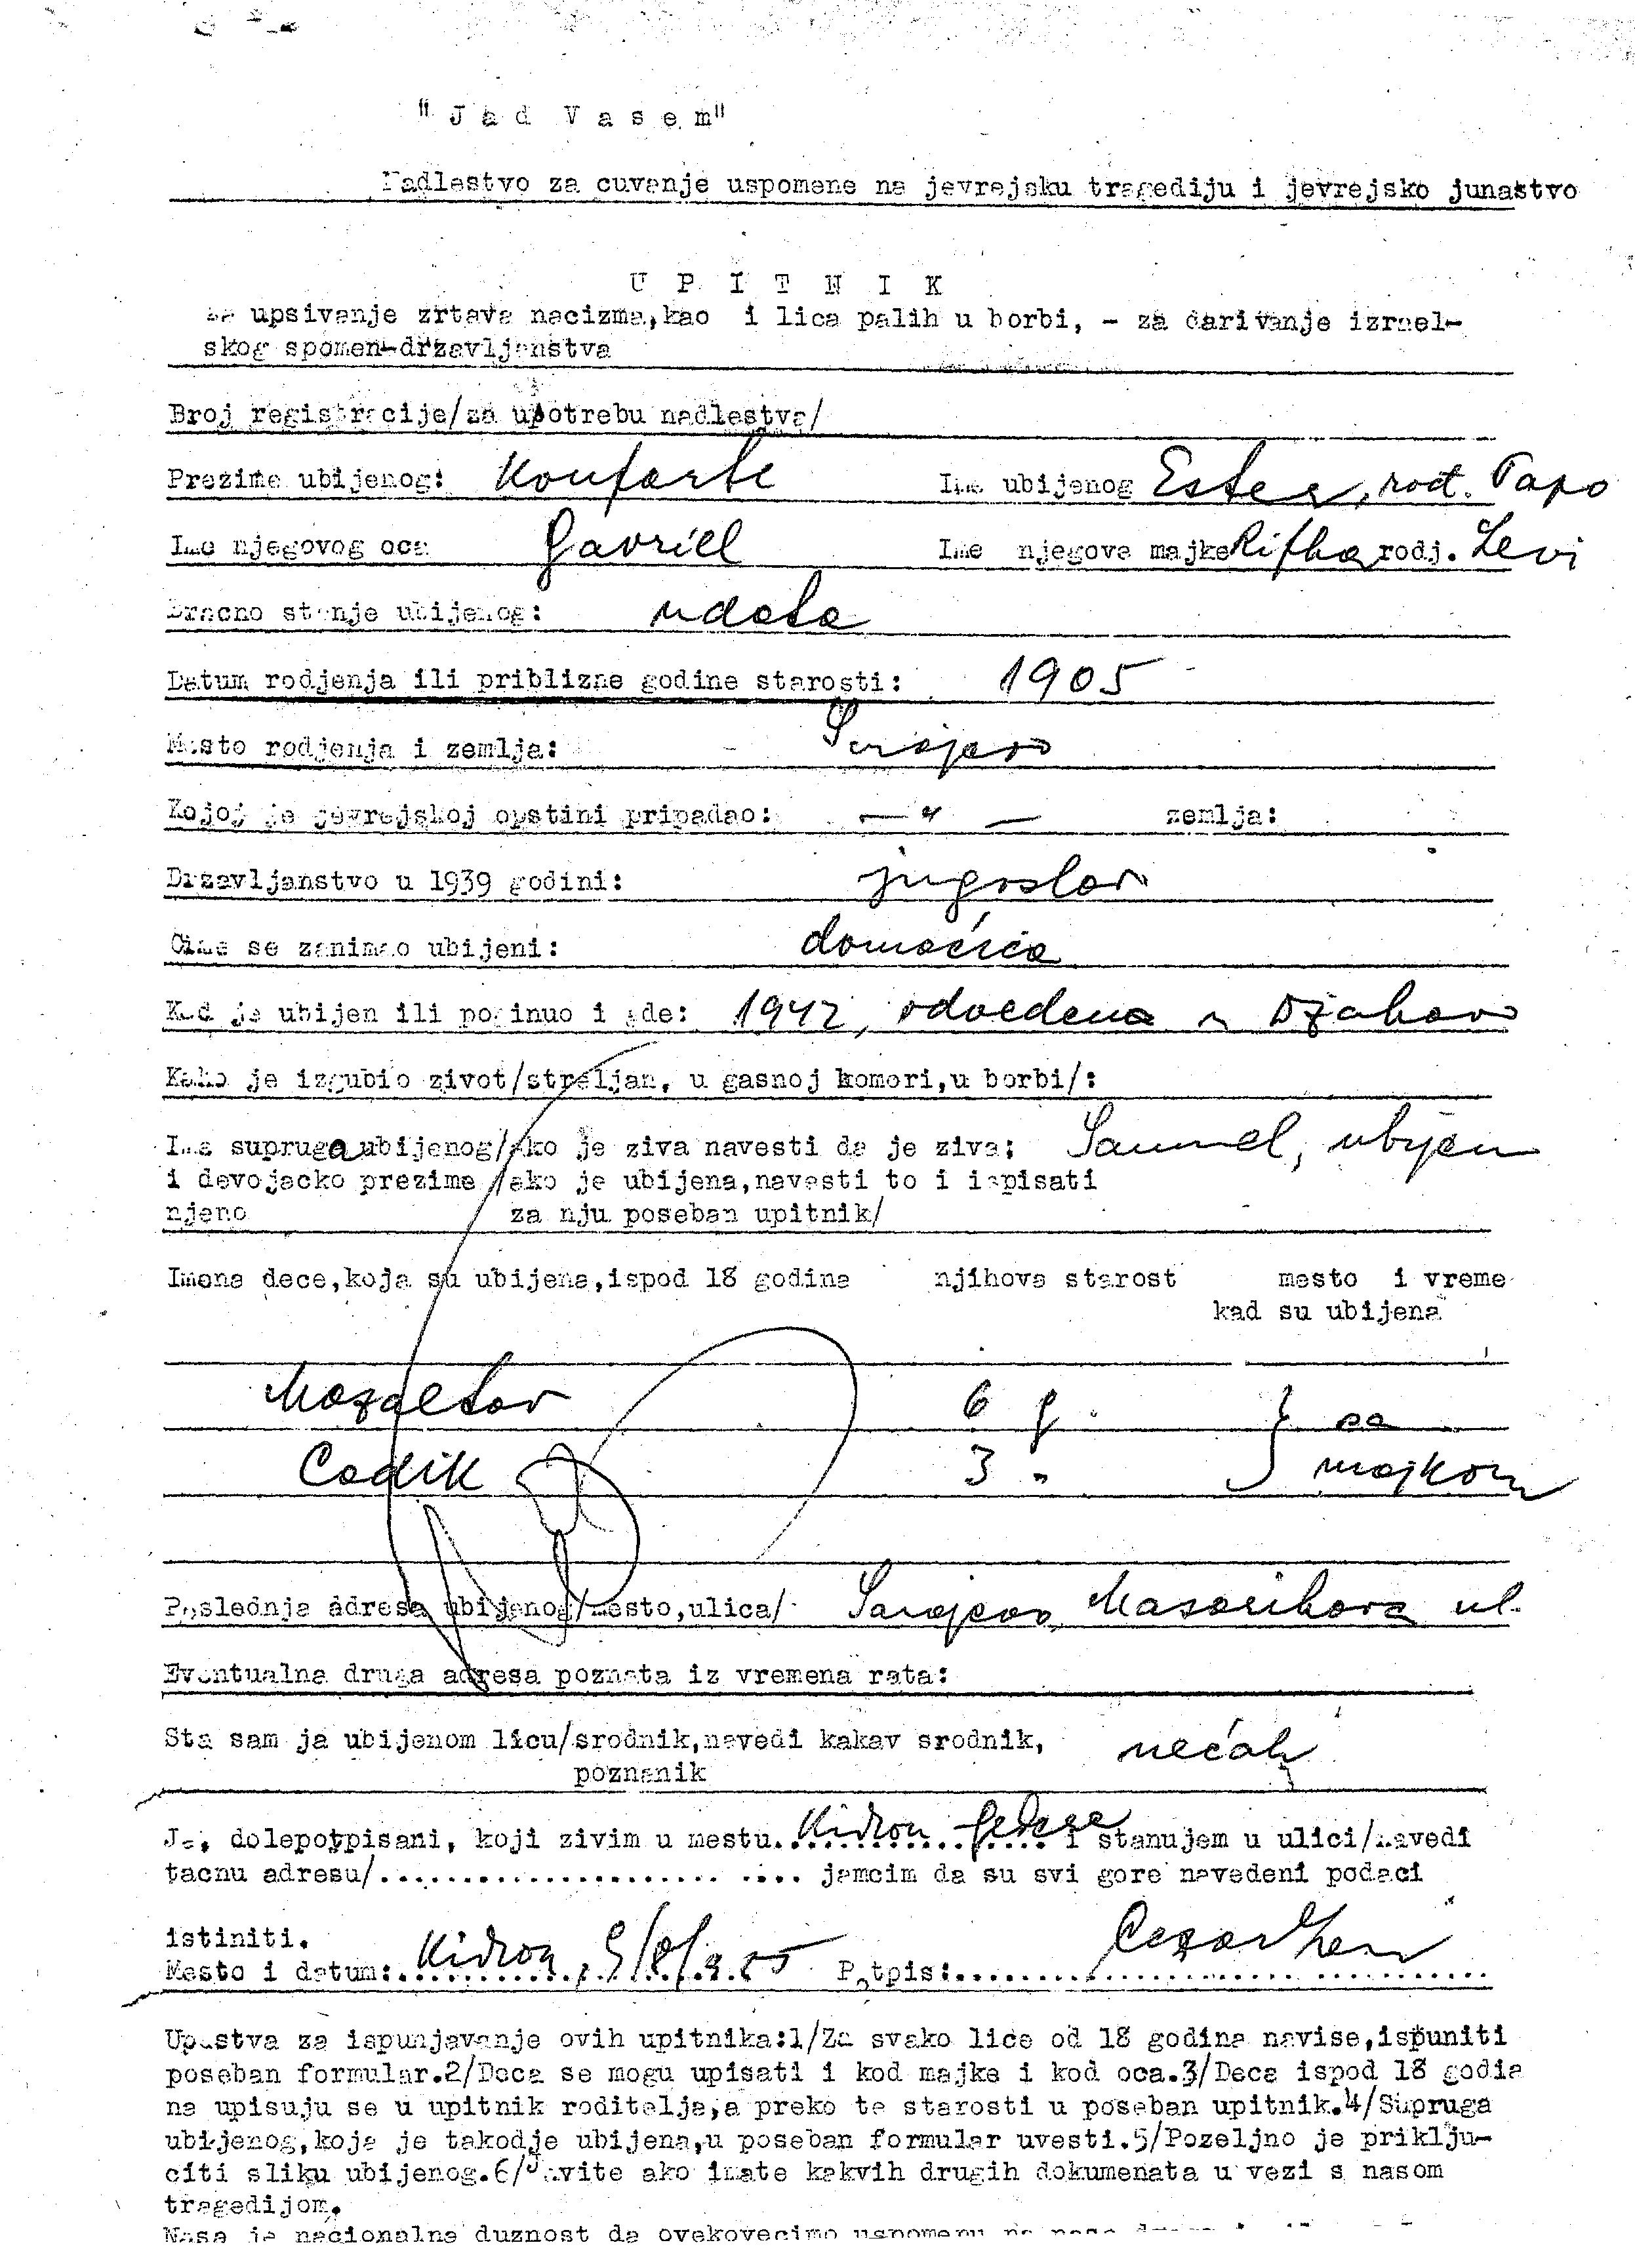 "Jad Vasem"
Nadlestvo za cuvanje uspomene na jevrejsku tragediju i jevrejsko junastvo
UPITNIK
za upsivanje zrtava nacizma, kao i lica palih u borbi, - za darivanje izrael-
skog spomen-drzavljanstva
Broj registracije/za upotrebu nadlestva/
Prezime ubijenog: Konforte Ime ubijenog Ester, rođ. Papo
Ime njegovog oca Gavriel Ime njegove majke Rifka rodj. Levi
Bracno stanje ubijenog: udata
Datum rodjenja ili priblizne godine starosti: 1905
Mesto rodjenja i zemlja: Sarajevo
Kojoj je jevrejskoj opstini pripadao: — " — zemlja:
Drzavljanstvo u 1939 godini: jugoslav
Cime se zanimao ubijeni: domaćica
Kad je ubijen ili poginuo i gde: 1942, odvedena u Djakovo
Kako je izgubio zivot/streljan, u gasnoj komori, u borbi/:
Ime supruga ubijenog/ako je ziva navesti da je ziva; Samuel, ubijen
i devojacko prezime /ako je ubijena, navesti to i ispisati
njeno za nju poseban upitnik/
Imena dece, koja su ubijena, ispod 18 godina njihova starost mesto i vreme
kad su ubijena
Mazaltov 6 g. } sa
Cadik 3 " majkom
Poslednja adresa ubijenog/mesto, ulica/ Sarajevo, Masarikova ul.
Eventualna druga adresa poznata iz vremena rata:
Sta sam ja ubijenom licu/srodnik, navedi kakav srodnik, nećak
poznanik
Ja, dolepotpisani, koji zivim u mestu..Kidron Gedera i stanujem u ulici/navedi
tacnu adresu/........................ jamcim da su svi gore navedeni podaci
istiniti.
Mesto i datum:.Kidron, Potpis:
Upustva za ispunjavanje ovih upitnika:1/Za svako lice od 18 godina navise, ispuniti
poseban formular.2/Deca se mogu upisati i kod majke i kod oca.3/Deca ispod 18 godia
na upisuju se u upitnik roditelja, a preko te starosti u poseban upitnik.4/Supruga
ubijenog, koja je takodje ubijena, u poseban formular uvesti.5/Pozeljno je priklju-
citi sliku ubijenog.6/Javite ako imate kakvih drugih dokumenata u vezi s nasom
tragedijom.
Nasa je nacionalna duznost da ovekovecimo uspomenu na nase